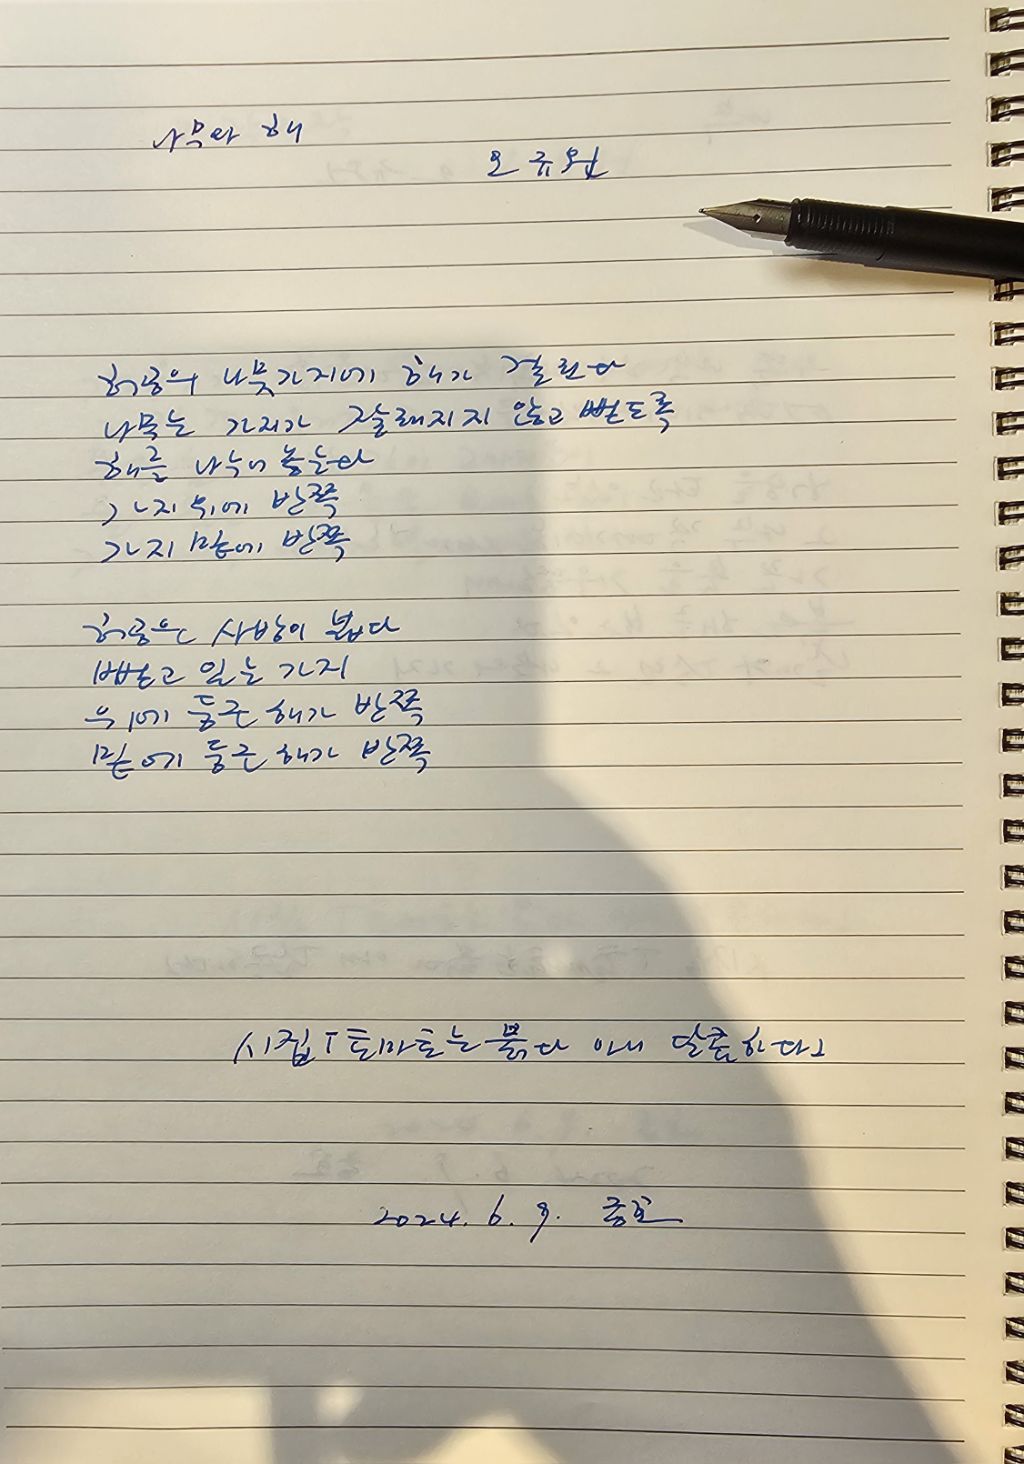 나무와 해
오규원
허공의 나뭇가지에 해가 걸린다
나무는 가지가 찢어지지 않고 뻗도록
해를 나누어 놓는다
가지 위에 반쪽
가지 밑에 반쪽
허공은 사방이 넓다
뻗고 있는 가지
위에 둥근 해가 반쪽
밑에 둥근 해가 반쪽
시집「토마토는 붉다 아니 달콤하다」
2024. 6. 9.